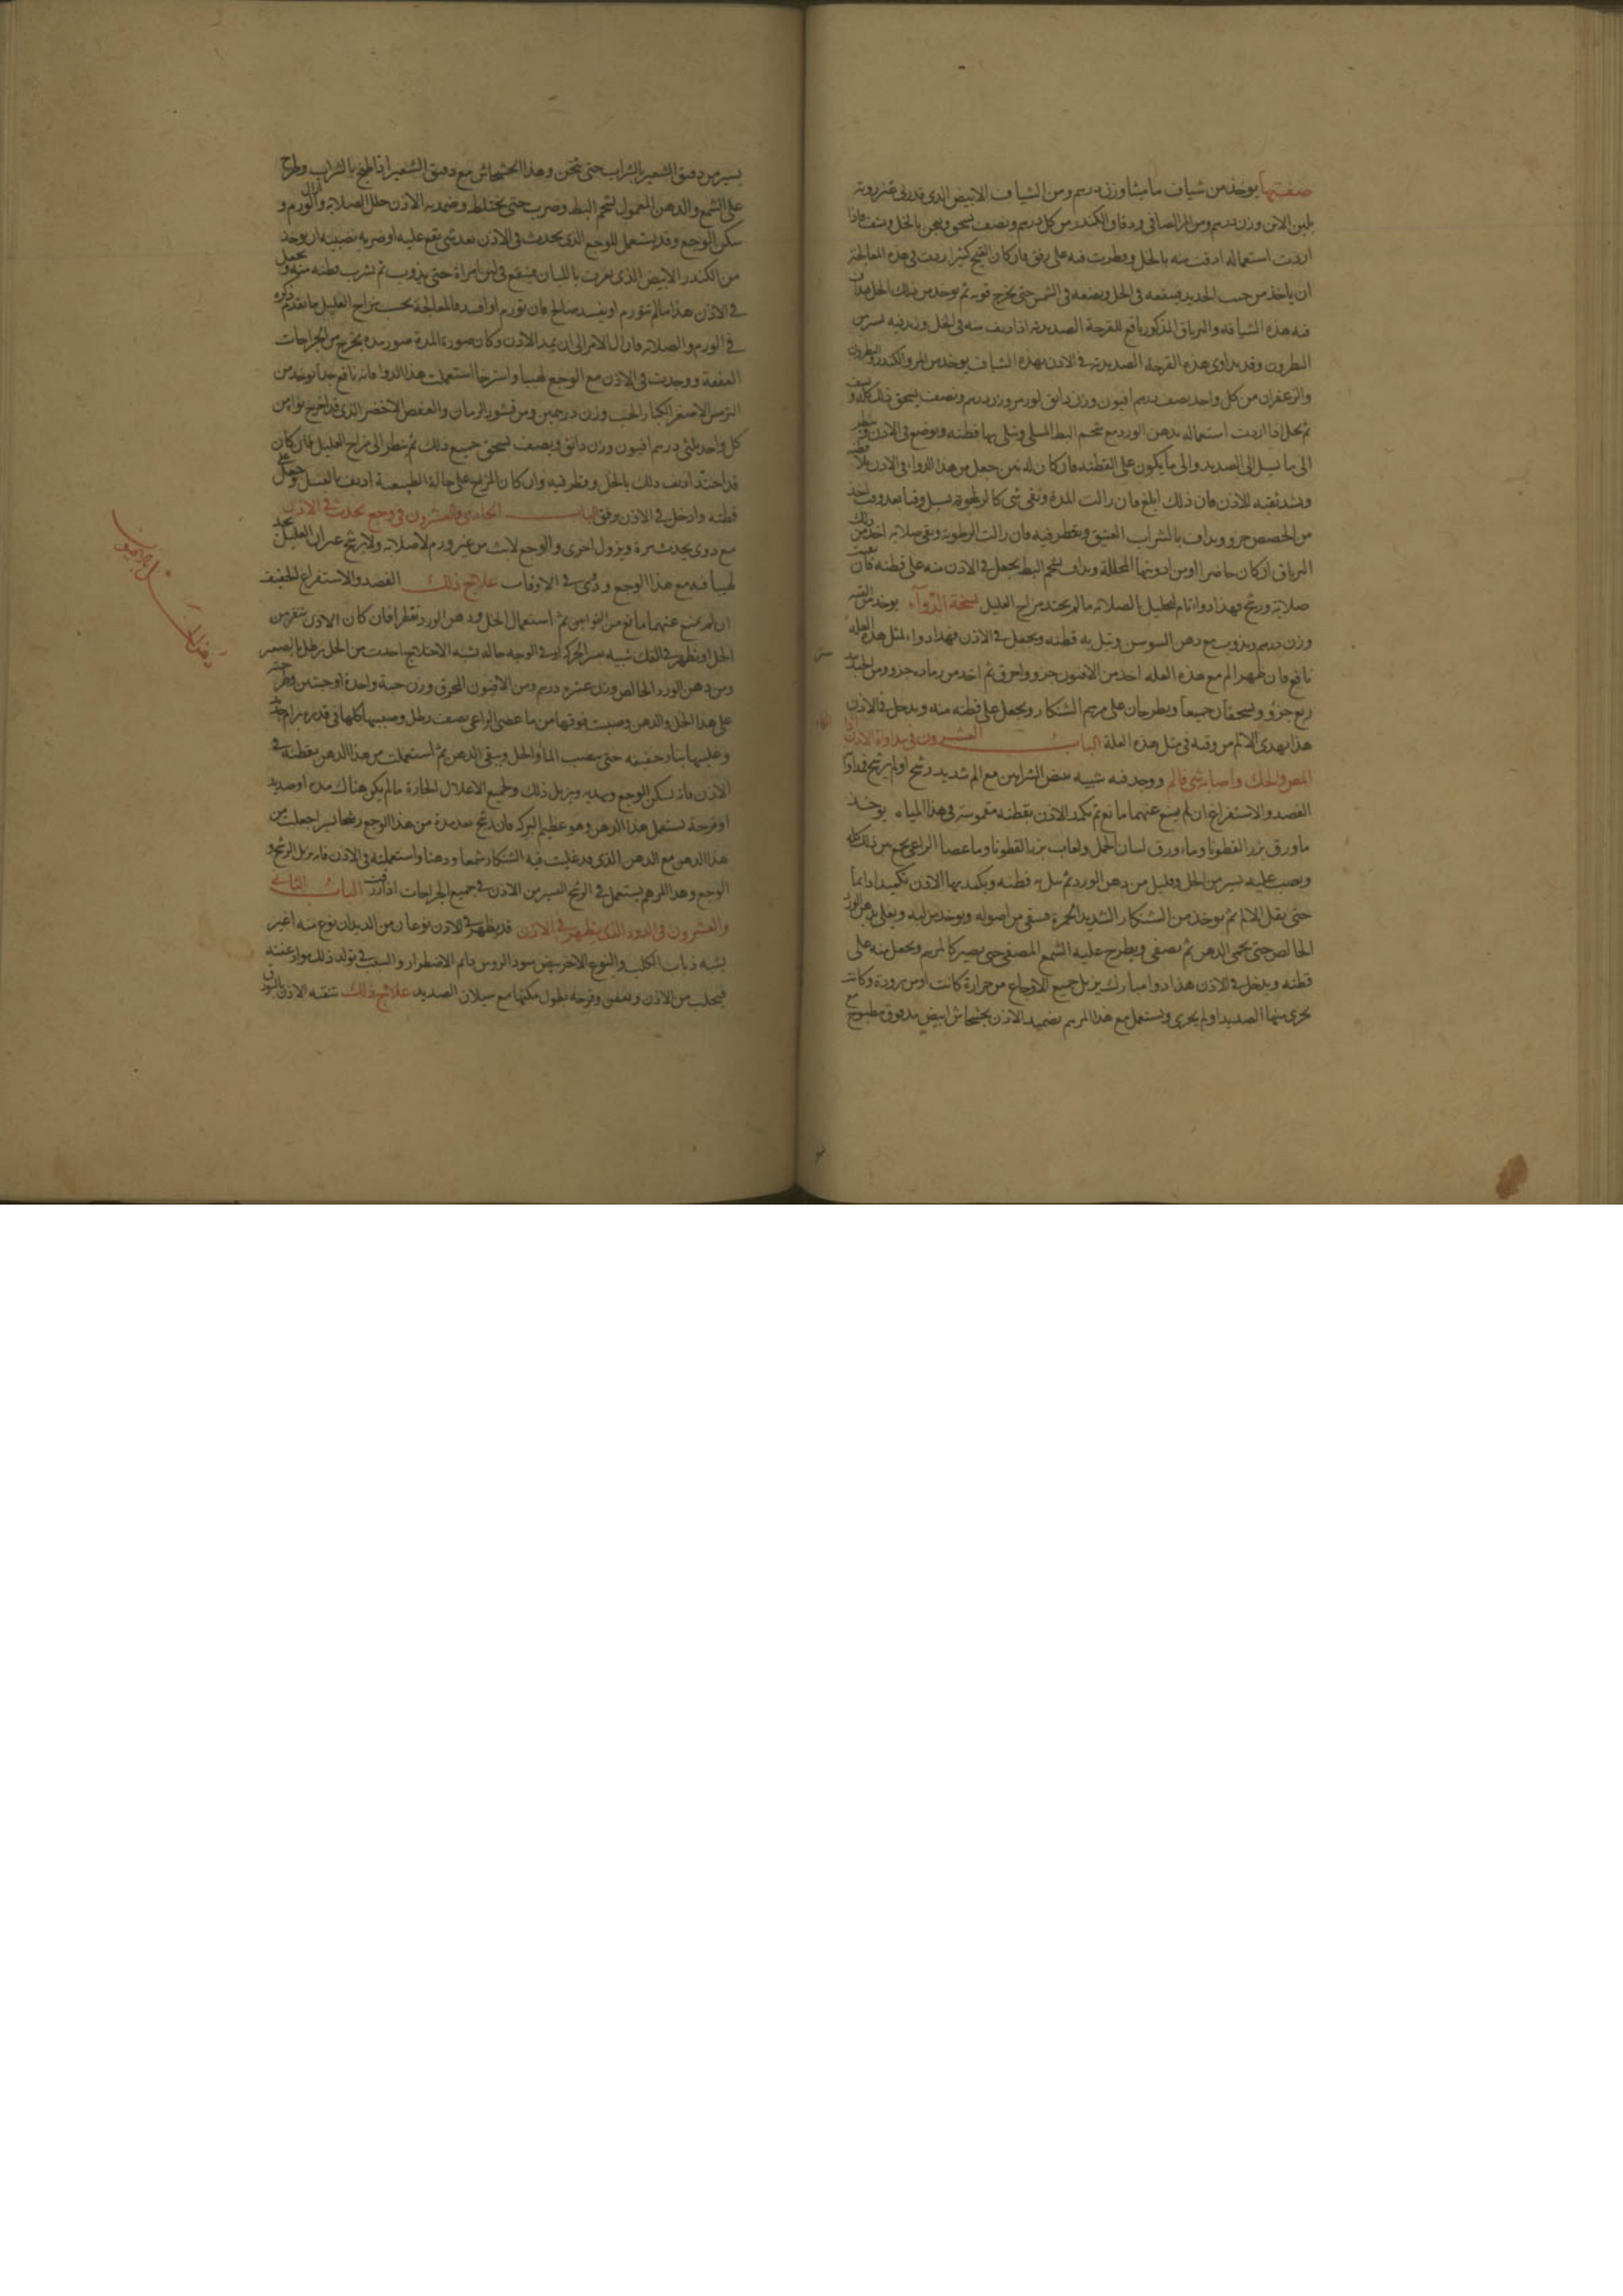 صفتها يوخذ من شياف ماميثا وزن درهم ومن الشياف الابيض الذي قد ربي عنزروته
بلبن الاتن وزن درهم ومن المر الصافي ودقاق الكندر من كل درهم ونصف يسحق ويعجن بالخل ويشف فاذا
اردت استعماله ادفت منه بالخل وقطرت فيه على رفق فان كان القيح كثيرا زدت في هذه المعالجة
ان ياخذ من خبث الحديد فينقعه في الخل ويضعه في الشمس حتى يخرج قوته ثم يوخذ من ذلك الخل فيداف
فيه هذه الشيافه والترياق المذكور نافع للقرحة الصديدية اذا ديف منه في الخل وزيد فيه يسير من
النطرون وقد يداوى هذه القرحة الصديدية في الاذن بهذه الشياف يوخذ من المر والكندر والنطرون
والزعفران من كل واحد نصف درهم افيون وزن دانق لوز مر وزن درهم ونصف يسحق ذلك كله و
ثم يحل اذا اردت استعماله بدهن الورد مع شحم البط المسلى وتبلى بها قطنه ويوضع في الاذن وينظر
الى ما يسيل الى الصديد والى ما يكون على القطنه فان كان له نتن جعل من هذا الدواء في الاذن بلا
ويشد ثقبه الاذن فان ذلك ابلغ فان زالت المدة وبقى شى كالرطوبة يسيل وقتا بعد وقت اخذ
من الحضض جزو ويداف بالشراب العتيق ويقطر فيه فان زالت الرطوبة وبقى صلابه اخذ من ذلك
الترياق ان كان حاضرا او من ادويتها المحللة ويداف بشحم البط يجعل في الاذن منه على قطنه فان بقيت
صلابة وريح فهذا دواء تام لتحليل الصلابه ما لم يحتد مزاج العليل نسخة الدوآء يوخذ من القنه
وزن درهم ويذوب مع دهن السوسن وتبل به قطنه ويجعل في الاذن فهذا دواء لمثل هذه العله
نافع فان ظهر الم مع هذه العله اخذ من الافيون جزو واحرق ثم اخذ من رماده جزو ومن الجندبيد
ربع جزؤ ويسحقان جميعا ويطرحان على مرهم الشنكار ويجعل على قطنه منه ويدخل في الاذن
هذا يهدى الالم من وقته في مثل هذه العلة الباب العشرون في مداواة الاذن اذا
المص والحك واصابه شي فالم ووجد فيه شبيه ببعض الشراين مع الم شديد رشح او لم يرشح فمداواة
الفصد والاستفراغ ان لم يمنع عنهما مانع ثم تكمد الاذن بقطنه مغموسة في هذا المياه يوخذ
ماورق بزر القطونا وماء ورق لسان الحمل ولعاب بزر القطونا وما عصا الراعي يجمع من ذلك كله
ويصب عليه يسير من الخل وقليل من دهن الورد ثم تبل به قطنه ويكمد بها الاذن تكميدا دائما
حتى يقل الالم ثم يوخذ من الشنكار الشديد الحمرة فينقى من اصوله ويوخذ من لبه ويغلى بدهن الورد
الخالص حتى يحمى الدهن ثم يصفى ويطرح عليه الشمع المصفى حتى يصير كالمرهم ويجعل منه على
قطنه ويدخل في الاذن هذا دوا مبارك يزيل جميع الاوجاع من حرارة كانت او من برودة وكانت
يجرى منها الصديد او لم يجرى ويستعمل مع هذا المرهم تضميد الاذن بخشخاش ابيض مدقوق مطبوخ مع
يسير من دقيق الشعير بالشراب حتى يثخن وهذا الخشخاش مع دقيق الشعير اذا طبخ بالشراب وطرح
على الشمع والدهن المعمول بشحم البط وضرب حتى يختلط وضمد به الاذن حلل الصلابه وازال الورم و
سكن الوجع وقد يستعمل للوجع الذي يحدث في الاذن بعد شي يقع عليه او ضربه تصيبه ان يوخذ
من الكندر الابيض الذي يعرف باللبان فينقع في لبن امراة حتى يذوب ثم يشرب قطنه منه ويجعل
في الاذن هذا ما لم تتورم او يفسد صالح فان تورم او افسد فالمعالجة بحسب مزاج العليل ما تقدم ذكره
في الورم والصلابه فان ال الامر الى ان يمد الاذن وكان صورة المدة صورمده يخرج من الجراحات
العفنة ووجدت في الاذن مع الوجع لهيبا واسترخا استعملت هذا الدوا فانه نافع جدا يوخذ من
الترمس الاصفر الكبار الحب وزن درهمين ومن قشور الرمان والعفص الاخضر الذي قد اخرج نواه من
كل واحد ثلثي درهم افيون وزن دانق ونصف يسحق جميع ذلك ثم ينظر الى مزاج العليل فان كان
قد احتد اديف ذلك بالخل وقطر فيه وان كان المزاج على حالة الطبيعة اديف بالعسل وجعل على
قطنه وادخل في الاذن برفق الباب الحادي والعشرون في وجع يحدث في الاذن
مع دوى يحدث مرة ويزول اخرى والوجع لابث من غير ورم لا صلابه ولا ريح غير ان العليل يجد
لهيبا فيه مع هذا الوجع ودوى في الاوقات علاج ذلك الفصد والاستفراغ الخفيف
ان لم يمنع عنهما مانع من النوايب ثم استعمال الخل ودهن الورد تقطر افان كان الاذن تنفر من
الخل او يظهر في الفك شبيه عسر الحركة او في الوجه حاله شبه الاختلاج اخذت من الخل رطل بالصغير
ومن دهن الورد الخالص وزن عشره درهم ومن الافيون المحرق وزن حبة واحدة او حبتين وطرح
على هذا الخل والدهن وصببت فوقها من ما عصى الراعي نصف رطل وصببها كلها في قدر برام جديد
وغليتها بنار خفيفه حتى ينضب الما والخل ويبقى الدهن ثم استعملت من هذا الدهن بقطنه في
الاذن فانه يسكن الوجع ويهديه ويزيل ذلك ولجميع الاعلال الحارة ما لم يكن هناك مده او صديد
او قرحة يستعمل هذا الدهن وهو عظيم البركه فان رشح بعد مدة من هذا الوجع رشحا يسيرا جعلت من
هذا الدهن مع الدهن الذي قد غليت فيه الشنكار شمعا ودهنا واستعملته في الاذن فانه يزيل الريح و
الوجع وهذا المرهم يستعمل في الريح العسير من الاذن في جميع الجراحات اذا رقت الباب الثاني
والعشرون في الدود الذي يظهر في الاذن قد يظهر في الاذن نوعان من الديدان نوع منه اغبر
يشبه ذباب الكلب والنوع الاخر بيض سود الروس دايم الاضطراب والسبب في تولد ذلك مواد عفنه
فيجلب من الاذن وتعفن وقرحه يطول مكثها مع سيلان الصديد علاج ذلك تنقيه الاذن بالبورق